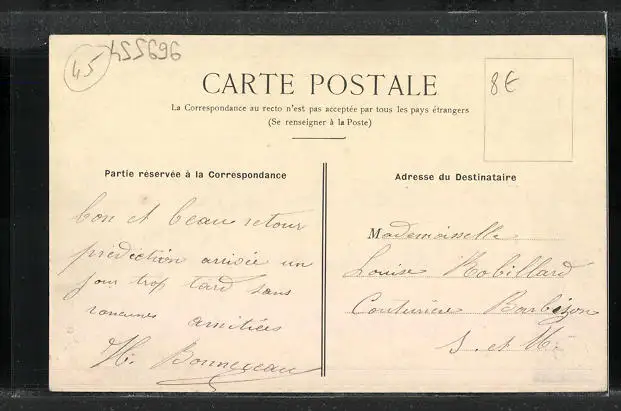 45
455696
CARTE POSTALE
8€
La Correspondance au recto n'est pas acceptée par tous les pays étrangers
(Se renseigner à la Poste)
Partie réservée à la Correspondance
bon et beau retour
prédiction arrivée un
jour trop tard sans
amitiées
H. Bonneveau
Adresse du Destinataire
Mademoiselle
Louise Robillard
Couturière Barbizon
S. et M.